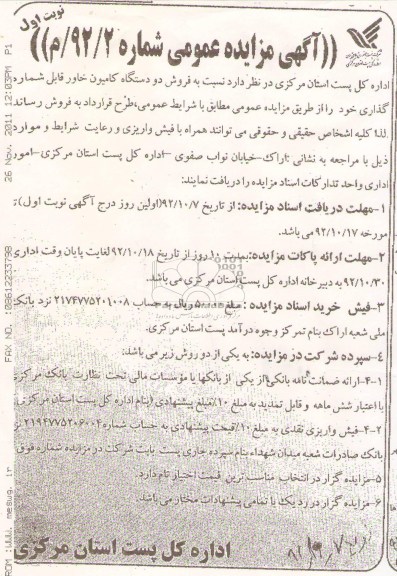 نوبت اول
((آگهی مزایده عمومی شماره ۹۲/۲/م))
اداره کل پست استان مرکزی در نظر دارد نسبت به فروش دو دستگاه کامیون خاور قابل شماره
گذاری خود را از طریق مزایده عمومی مطابق با شرایط عمومی،طرح قرارداد به فروش رساند
لذا کلیه اشخاص حقیقی و حقوقی می توانند همراه با فیش واریزی و رعایت شرایط و موارد
ذیل با مراجعه به نشانی :اراک-خیابان نواب صفوی -اداره کل پست استان مرکزی-امور
اداری واحد تدارکات اسناد مزایده را دریافت نمایند:
۱-مهلت دریافت اسناد مزایده: از تاریخ ۹۲/۱۰/۷(اولین روز درج آگهی نوبت اول)
مورخه ۹۲/۱۰/۱۷ می باشد.
۲-مهلت ارائه پاکات مزایده:بمدت ۱۰روز از تاریخ ۹۲/۱۰/۱۸ لغایت پایان وقت اداری
۹۲/۱۰/۳۰ به دبیرخانه اداره کل پست استان مرکزی می باشد.
۳-فیش خرید اسناد مزایده : مبلغ ریال به حساب ۲۱۷۴۷۷۵۲۰۱۰۰۸ نزد بانک
ملی شعبه اراک بنام تمرکز وجوه درآمد پست استان مرکزی.
۴-سپرده شرکت در مزایده: به یکی از دو روش زیر می باشد:
۴-۱-ارائه ضمانت نامه بانکی از یکی از بانکها یا مؤسسات مالی تحت نظارت بانک مرکزی
با اعتبار شش ماهه و قابل تمدید به مبلغ ۱۰٪مبلغ پیشنهادی (بنام اداره کل پست استان مرکزی
۴-۲-فیش واریزی نقدی به مبلغ ۱۰٪قیمت پیشنهادی به حساب شماره ۲۱۹۴۷۷۵۲۰۶۰۰۴ نزد
بانک صادرات شعبه میدان شهداء بنام سپرده جاری پست بابت شرکت در مزایده شماره فوق
۵-مزایده گزار در انتخاب مناسب ترین قیمت اختیار تام دارد.
۶-مزایده گزار در رد یک یا تمامی پیشنهادات مختار می باشد.
اداره کل پست استان مرکزی
26 Nov. 2011 12:03PM P1
FAX NO. :08612233798